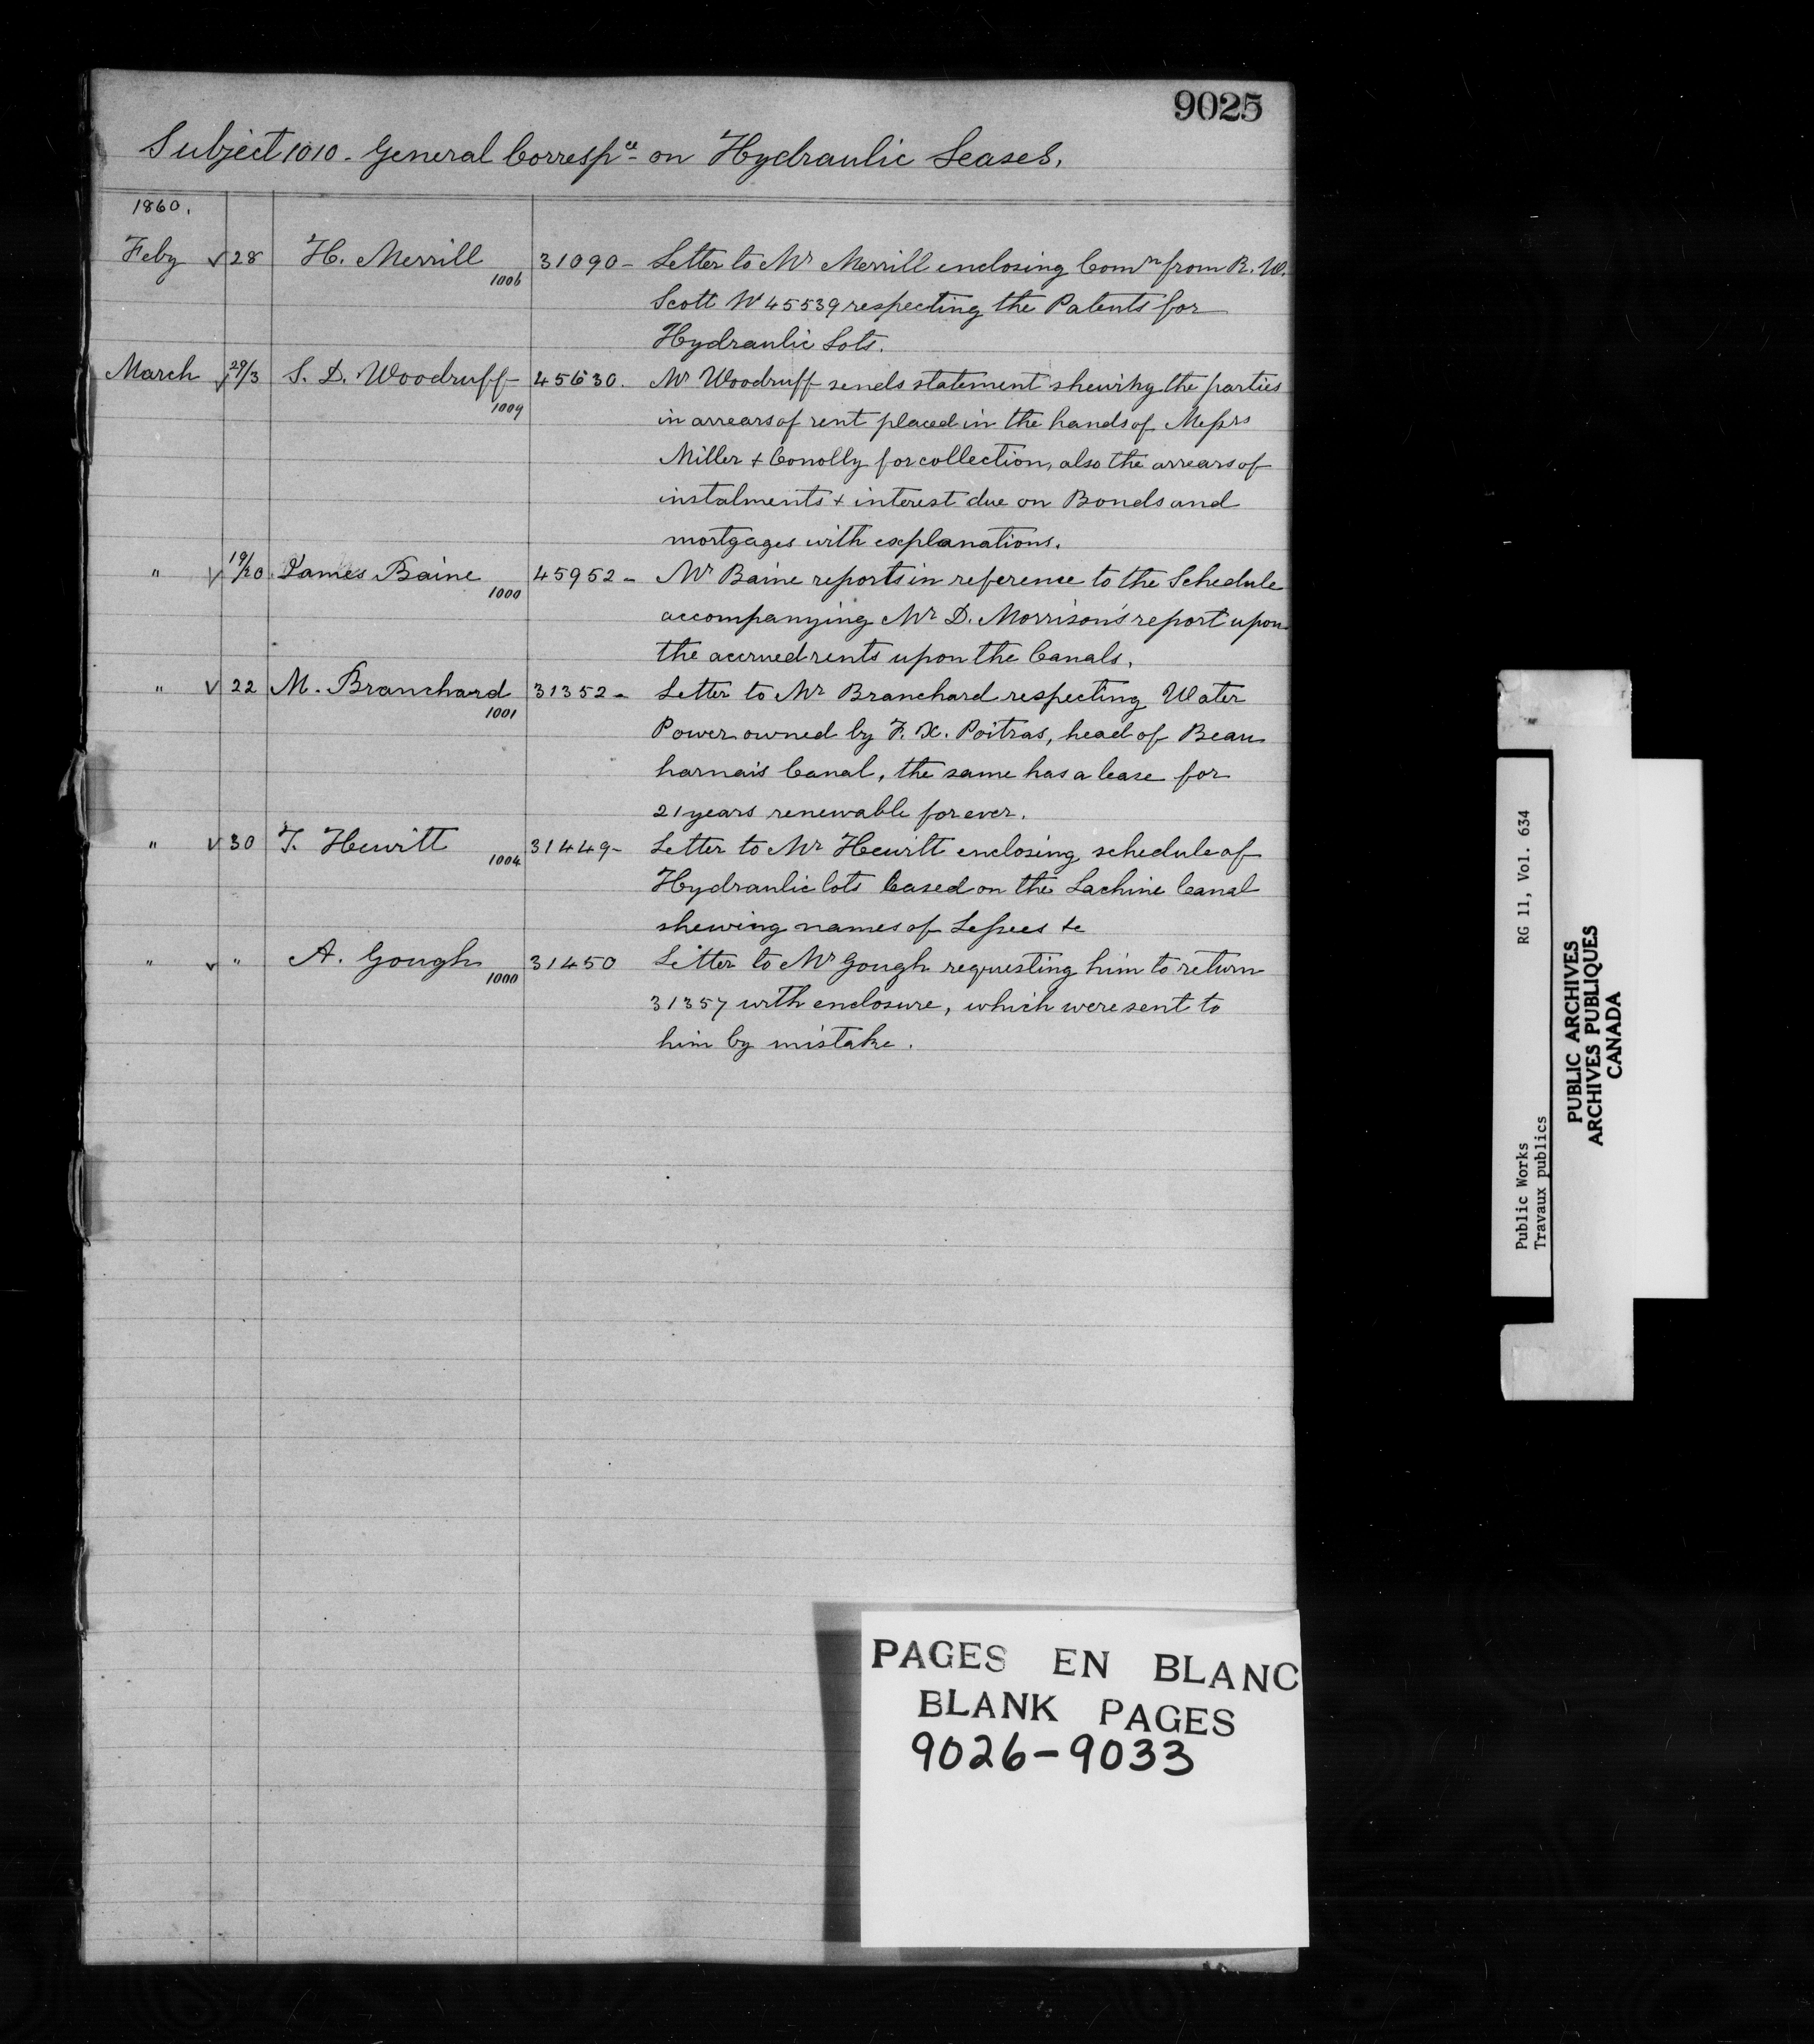 9025
Subject 1010 - General Correspce - on Hydraulic Leases.
1860.
Feby √ 28 H. Merrill 1006 31090 - Letter to Mr Merrill enclosing Comn from R. W.
Scott No 45539 respecting the Patents for
Hydraulic Lots.
March √ 29/3 S. D. Woodruff 1009 45630. Mr Woodruff sends statement shewing the parties
in arrears of rent placed in the hands of Messrs
Miller + Conolly for collection, also the arrears of
instalments + interest due on Bonds and
mortgages with explanations.
" √ 19/20 James Baine 1000 45952 - Mr Baine reports in reference to the Schedule
accompanying Mr D. Morrison's report upon
the accrued rents upon the Canals.
" √ 22 M. Branchard 1001 31352 - Letter to Mr Branchard respecting Water
Power owned by F. X. Poitras, head of Beau
harnais Canal, the same has a lease for
21 years renewable for ever.
" √ 30 T. Hewitt 1004 31449 - Letter to Mr Hewitt enclosing schedule of
Hydraulic lots leased on the Lachine Canal
shewing names of Lessees &c
" √ " A. Gough 1000 31450 Letter to Mr Gough requesting him to return
31357 with enclosure, which were sent to
him by mistake.
PAGES EN BLANC
BLANK PAGES
9026-9033
Public Works RG 11, Vol. 634
Travaux publics
PUBLIC ARCHIVES
ARCHIVES PUBLIQUES
CANADA